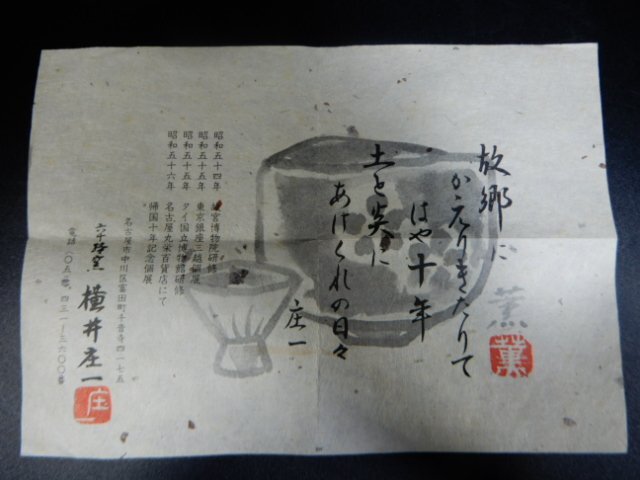 故郷に
かえりきたりて
はや十年
土と炎に
あけくれの日々
庄一
薫
薫
昭和五十四年 故宮博物院研修
昭和五十五年 東京銀座三越個展
昭和五十五年 タイ国立博物館研修
昭和五十六年 名古屋丸栄百貨店にて
帰国十年記念個展
名古屋市中川区富田町千音寺四一七五
横井庄一
庄一
電話〇五二、四三一ー三六〇〇番